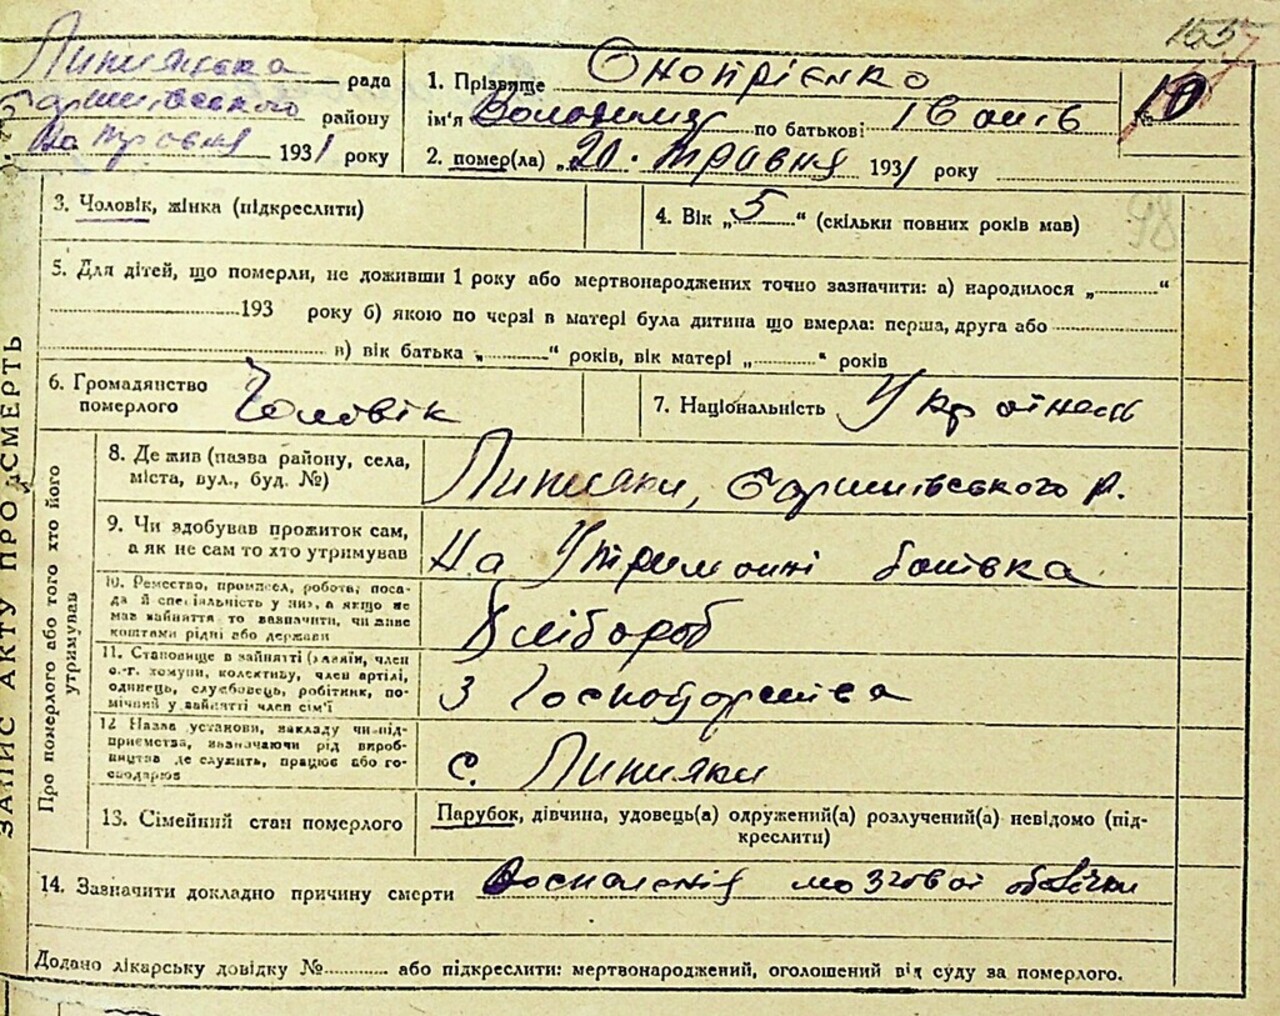 1557
Липняцька рада
району
травня 1931 року
1. Прізвище Онопрієнко
ім'я Володимир по батькові Іванів
№ 10
2. помер(ла) „20. травня 1931 року
3. Чоловік, жінка (підкреслити)
4. Вік „5“ (скільки повних років мав)
98
5. Для дітей, що померли, не доживши 1 року або мертвонароджених точно зазначити: а) народилося „ “
193 року б) якою по черзі в матері була дитина що вмерла: перша, друга або
в) вік батька „ “ років, вік матері „ “ років
6. Громадянство
померлого Чоловік
7. Національність Українець
ЗАПИС АКТУ ПРО СМЕРТЬ
Про померлого або того хто його
утримував
8. Де жив (назва району, села,
міста, вул., буд. №)
Липняки, р.
9. Чи здобував прожиток сам,
а як не сам то хто утримував
На утриманні батька
10. Ремество, промисел, робота, поса-
да й спеціальність у них, а якщо не
мав зайняття то зазначити, чи живе
коштами рідні або держави
Хлібороб
11. Становище в зайнятті (хазяїн, член
с.-г. комуни, колективу, член артілі,
одинець, службовець, робітник, по-
мічний у зайнятті член сім'ї
З Господарства
12 Назва установи, закладу чи під-
приємства, зазначаючи рід вироб-
ництва де служить, працює або го-
сподарює
с. Липняки
13. Сімейний стан померлого
Парубок, дівчина, удовець(а) одружений(а) розлучений(а) невідомо (під-
креслити)
14. Зазначити докладно причину смерти Воспаленія мозгової
Додано лікарську довідку № або підкреслити: мертвонароджений, оголошений від суду за померлого.